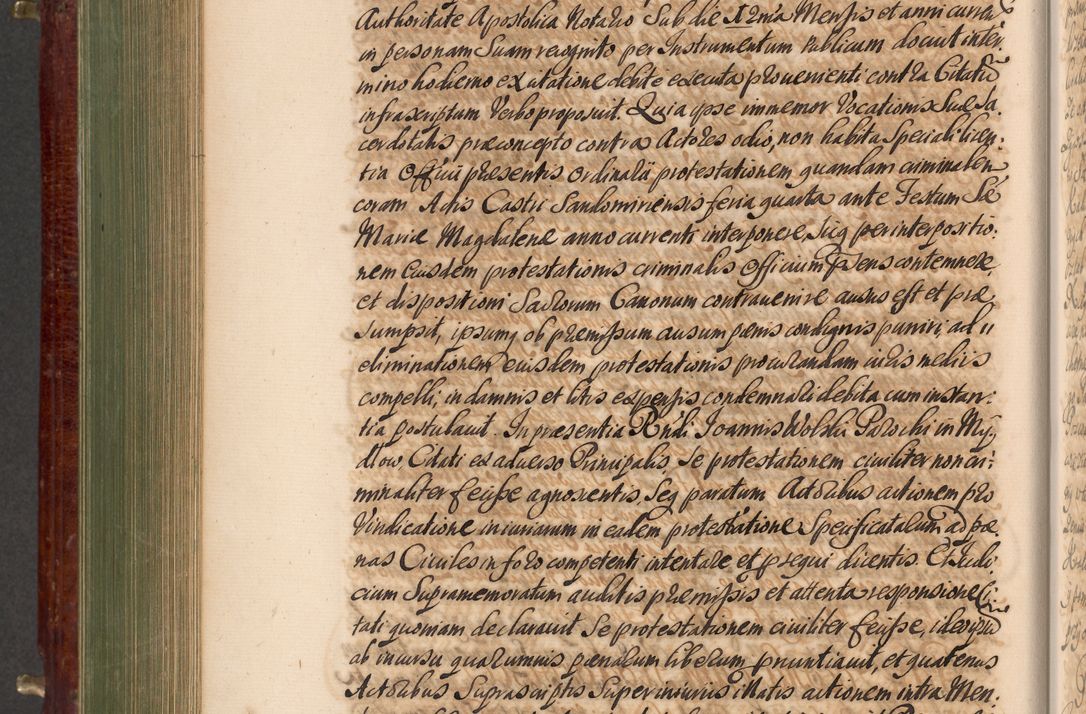 Authoritate Apostolica Notario Sub die 12ma Mensis et anni curren
in personam Suam recognito per Instrumentum Publicum docuit inter
mino hodierno ex citatione debite executa provenienti contra Citatū
infrascriptum Verbo proposuit. Quia ipse immemor Vocationis Suæ Sa
cerdotalis præconcepto contra Actores odio, non habita Speciali licen
tia Officii præsentis ordinarii protestationem quandam criminalem
coram Actis Castri Sandomiriensis feria quarta ante Festum Sæ
Mariæ Magdalenæ anno currenti interponere, Suq per interpositio
nem Eiusdem protestationis criminalis Officium Psens contemnere,
et dispositioni Sacrorum Canonum contravenire ausus est et præ
sumpsit, ipsumq ob præmissum ausum pœnis condignis puniri, ad
eliminationem eiusdem protestationis procurandam iuris mediis
compelli, in damnis et litis expensis condemnari debita cum instan
tia postulavit. In præsentia Rndi Joannis Wolski Parochi in My
dłow, Citati ex adverso Principalis, Se protestationem civiliter non cri
minaliter feciße agnoscentis, Seq paratum Actoribus actionem pro
Vindicatione iniuriarum in eadem protestatione Specificatarum ad pœ
nas Civiles in foro competenti intentare et prsequi dicentis. Et Judi
cium Supramemoratum auditis præmissis et attenta responsione Ci
tati quoniam declaravit Se protestationem civiliter feciße, ideo ipsū
ab incursu quarumvis pœnalum liberum pnuntiavit, et quatenus
Actoribus Suprascriptis Super iniuriis illatis actionem intra Men